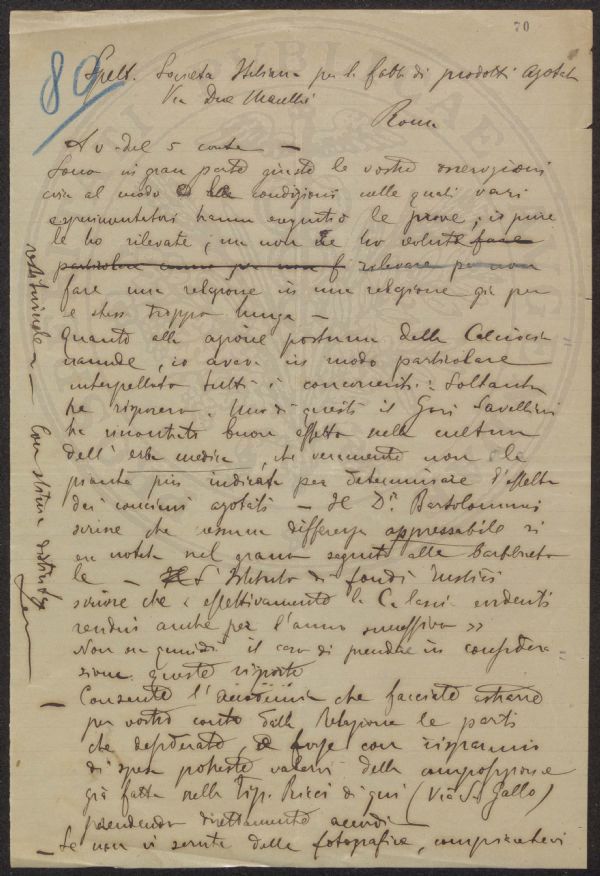 70
80
Spett. Società Italiana per la fabb. di prodotti azotati
Via Due Macelli
Roma
A v. del 5 corr.te —
Sono in gran parte giuste le vostre osservazioni
circa al modo e alle condizioni nelle quali vari
esperimentatori hanno eseguito le prove; io pure
le ho rilevate; ma non ho voluto fare
particolare rilevare per non
fare una relazione in una relazione già per
se stessa troppo lunga —
Quanto alla azione postuma della Calciocia
namide, io avevo in modo particolare
interpellato tutti i concorrenti: Soltanto
ha risposero. Uno di questi il Gori Savellini
ha riscontrato buon effetto nella cultura
dell' erba medica, che veramente non è la
pianta più indicata per determinare l'effetto
dei concimi azotati — Il Dr. Bartolommei
scrive che nessuna differenza appressabile si
era notata nel grano seguito alle barbabieto
le — L'Istituto di fondi rustici
scrive che « effettivamente la Calcio evidenti
residui anche per l'anno successivo »
Non era quindi il caso di prendere in considera=
zione queste risposte
— Consente l'accademia che facciate estrarre
per vostro conto dalla Relazione le parti
che desiderate, e forse con risparmio
di spesa potreste valervi della composizione
già fatta nella Tip. Ricci di qui (Via S. Gallo)
prendendo direttamente accordi —
— Se non vi servite delle fotografie, compiacetevi
restituircele — Con stima distinta